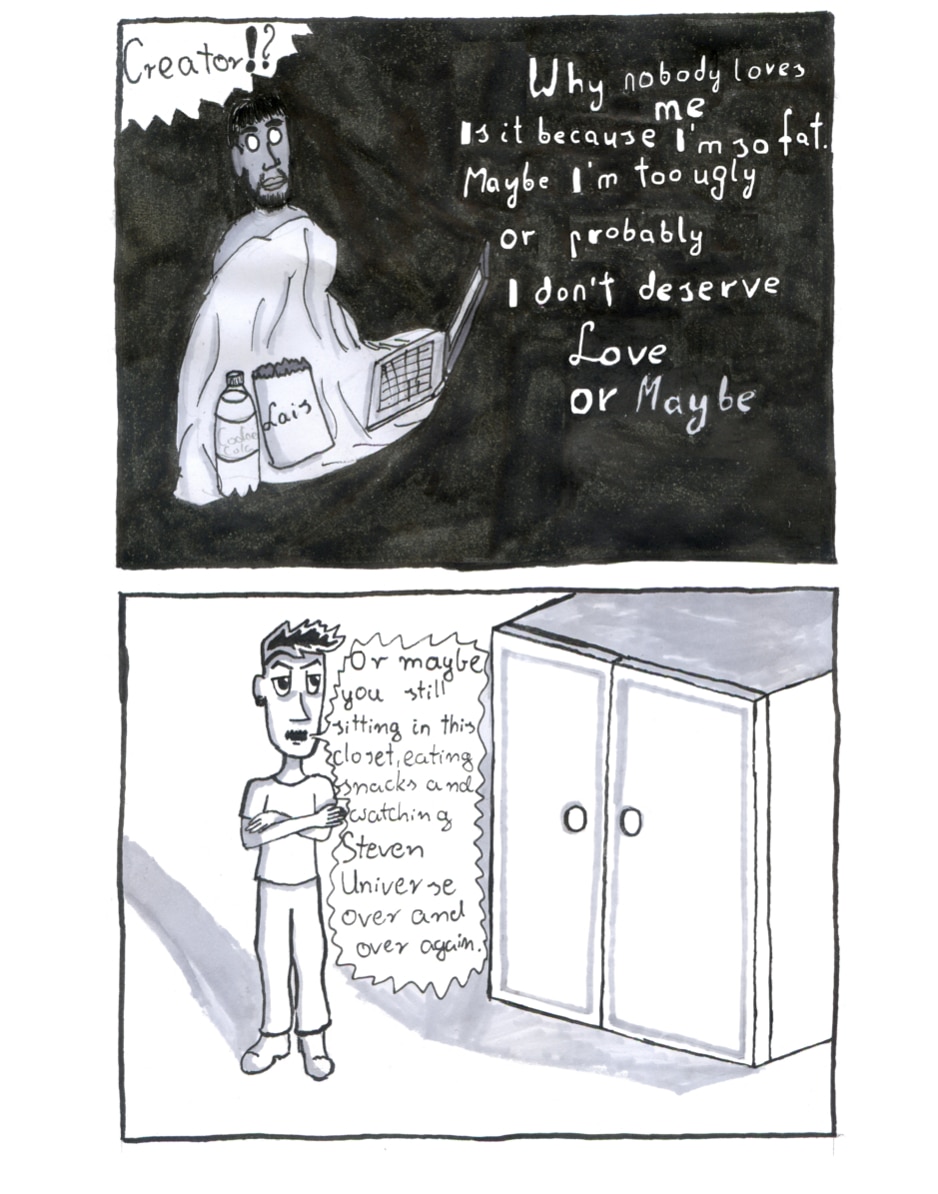 Creator!?
Why nobody loves
me
Is it because I'm so fat.
Maybe I'm too ugly
or probably
I don't deserve
Love
or Maybe
Lais
Or maybe
you still
sitting in this
closet, eating
snacks and
watching
Steven
Universe
over and
over again.